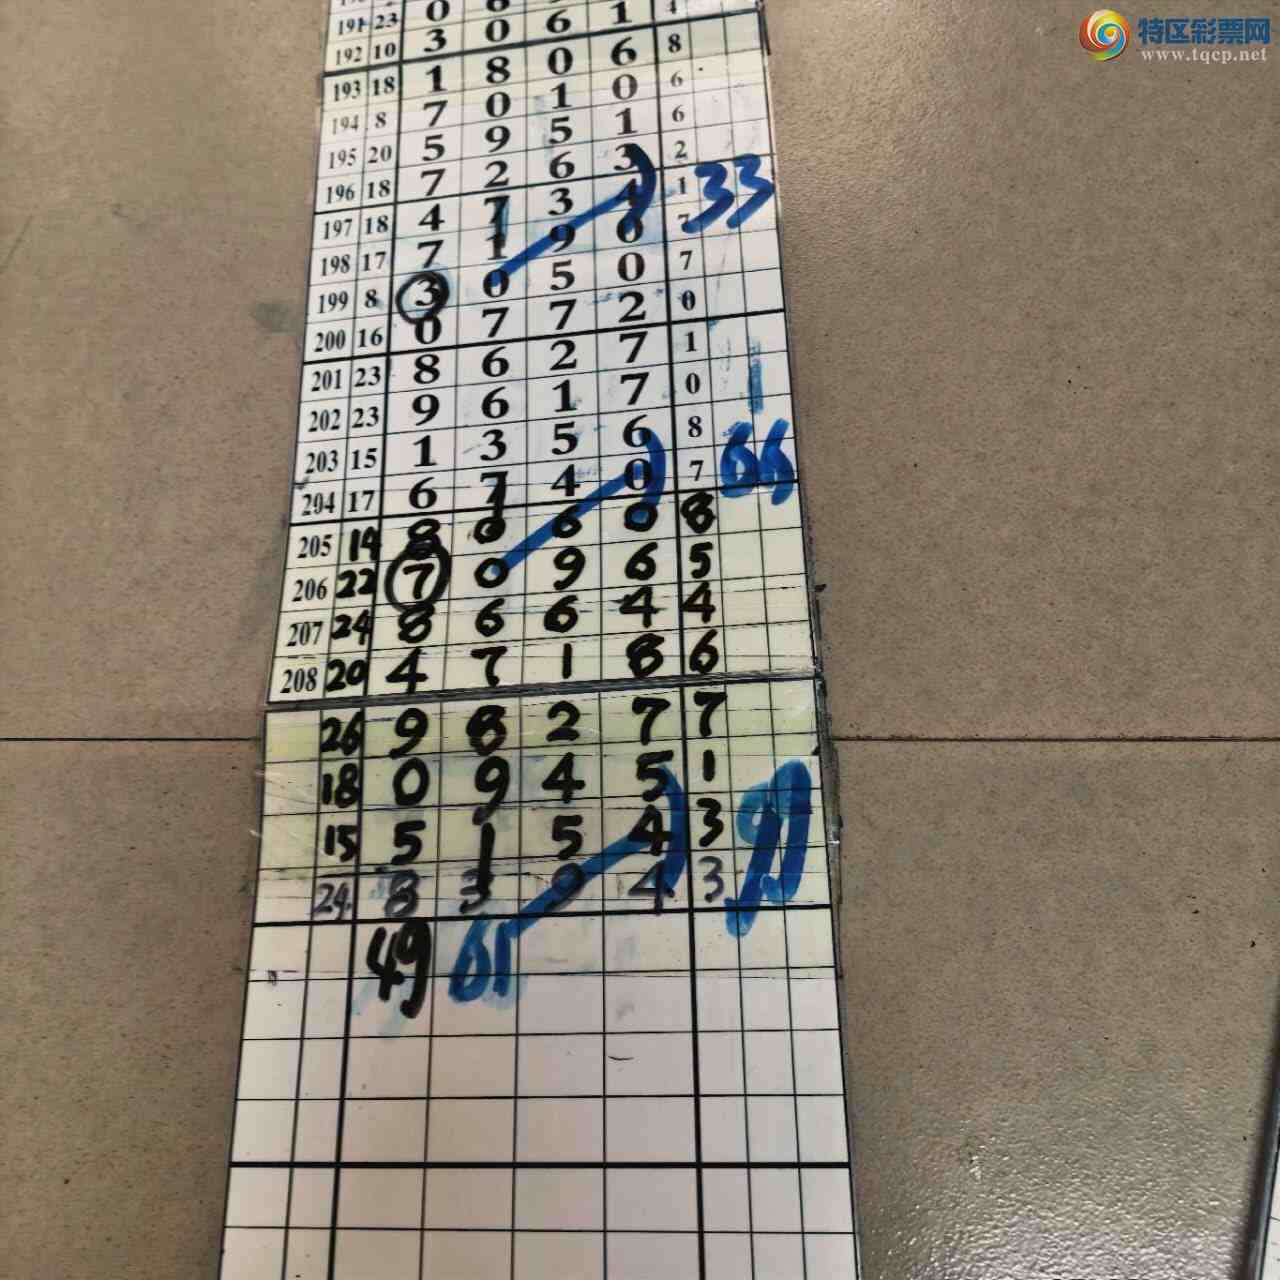 特区彩票网
www.tqcp.net
191 23 0 6 1 4
192 10 3 0 6 1
193 18 1 8 0 6 8
194 8 7 0 1 0 6
195 20 5 9 5 1 6
196 18 7 2 6 3 2
197 18 4 7 3 4 1 33
198 17 7 1 9 0 7
199 8 3 0 5 0 7
200 16 0 7 7 2 0
201 23 8 6 2 7 1
202 23 9 6 1 7 0
203 15 1 3 5 6 8
204 17 6 7 4 0 7 66
205 14 8 0 6 0 8
206 22 7 0 9 6 5
207 24 8 6 6 4 4
208 20 4 7 1 8 6
26 9 8 2 7 7
18 0 9 4 5 1
15 5 1 5 4 3 99
24 8 3 9 4 3
49 61